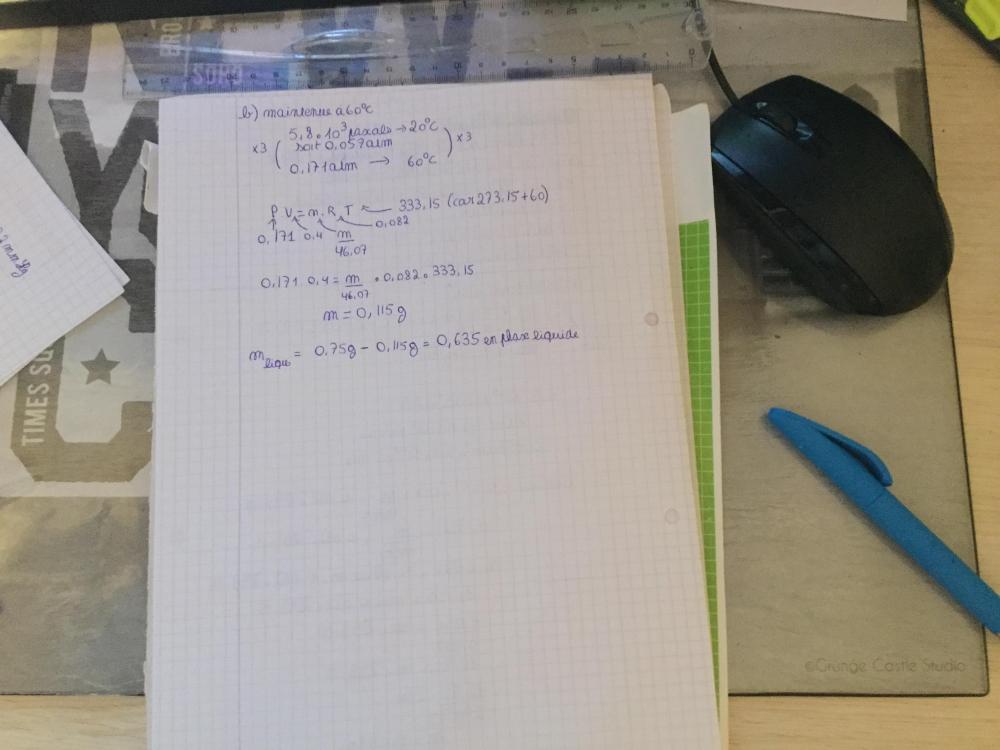 b) maintenue à 60°C
5,8.10³ pascals → 20°C
soit 0,057atm
x3 ( ) x3
0,171atm → 60°C
P V = n. R. T ← 333,15 (car 273,15+60)
0,082
0,171 0,4 m
46,07
0,171 0,4 = m . 0,082 . 333,15
46,07
m = 0,115g
m liqu = 0,75g - 0,115g = 0,635 en phase liquide
TIMES SQ
SOHO
©Grunge Castle Studio